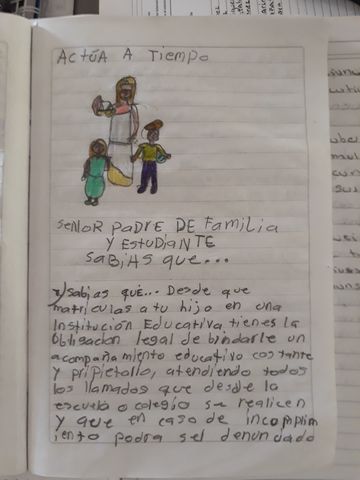 ACTÚA A Tiempo
señor padre DE Familia
Y EstuDiANTE
saBiAs que...
1) sabias que... Desde que
matriculas a tu hijo en una
Institución Educativa tienes la
Obligacion legal de brindarle un
acompañamiento educativo costante
y pripietollo, atendiendo todos
los llamados que desde la
escuela o colegio se realicen
y que en caso de incomplim
iento podra sel denundado